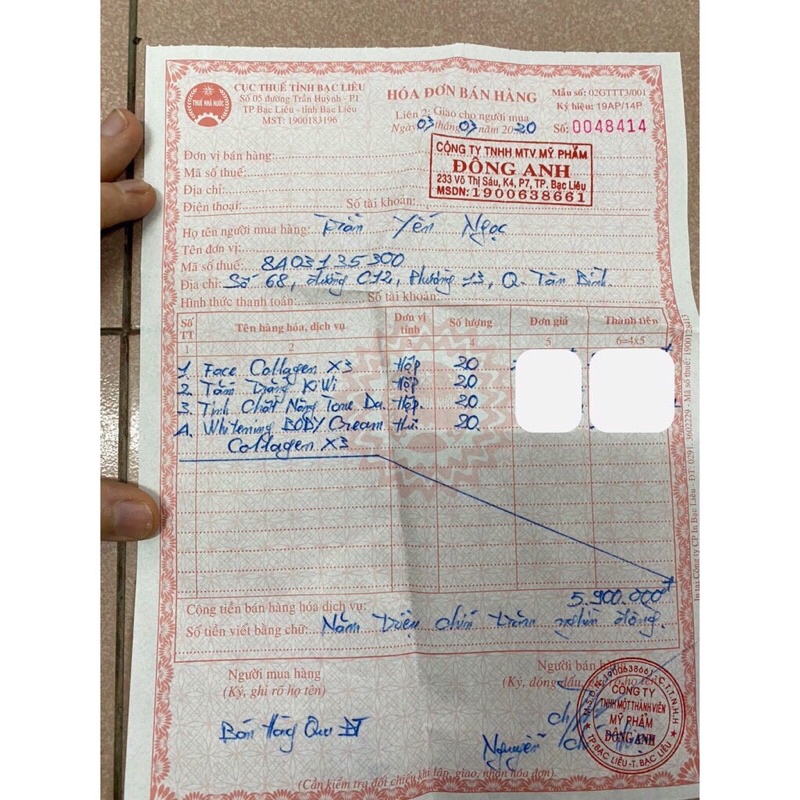 CỤC THUẾ TỈNH BẠC LIÊU
Số 05 đường Trần Huỳnh - P1
TP Bạc Liêu - tỉnh Bạc Liêu
MST: 1900183196
THUẾ NHÀ NƯỚC
HÓA ĐƠN BÁN HÀNG
Liên 2: Giao cho người mua
Ngày 03 tháng 07 năm 2020
Mẫu số: 02GTTT3/001
Ký hiệu: 19AP/14P
Số: 0048414
Đơn vị bán hàng:
Mã số thuế:
Địa chỉ:
Điện thoại: Số tài khoản:
CÔNG TY TNHH MTV MỸ PHẨM
ĐÔNG ANH
233 Võ Thị Sáu, K4, P7, TP. Bạc Liêu
MSDN: 1900638661
Họ tên người mua hàng: Trần Yến Ngọc
Tên đơn vị:
Mã số thuế: 8403135300
Địa chỉ: Số 68, đường C12, Phường 13, Q. Tân Bình
Hình thức thanh toán: Số tài khoản:
Số TT Tên hàng hóa, dịch vụ Đơn vị tính Số lượng Đơn giá Thành tiền
1 2 3 4 5 6=4x5
1. Face Collagen X3 Hộp 20
2. Tắm Trắng KiWi Hộp 20
3. Tinh Chất Nâng Tone Da Hộp. 20
4. Whitening BODY Cream 20.
Collagen X3
Cộng tiền bán hàng hóa dịch vụ: 5.900.000
Số tiền viết bằng chữ: Năm triệu chín trăm nghìn đồng.
Người mua hàng
(Ký, ghi rõ họ tên)
Bán Hàng Qua ĐT
Người bán
(Ký, đóng dấu,
Nguyễn
M.S.D.N: 1900638661 - C.T.T.N.H.H
CÔNG TY
TNHH MỘT THÀNH VIÊN
MỸ PHẨM
ĐÔNG ANH
TP. BẠC LIÊU - T. BẠC LIÊU
(Cần kiểm tra đối chiếu khi lập, giao, nhận hóa đơn)
In tại Công ty CP In Bạc Liêu - ĐT: 0291 3602229 - Mã số thuế: